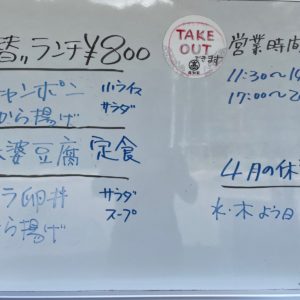 替ランチ¥800
チャンポン 小ライス
から揚げ サラダ
婆豆腐 定食
卵丼 サラダ
ら揚げ スープ
TAKE
OUT
できます
営業時間
11:30~1
17:00~2
4月の休
水・木よう日